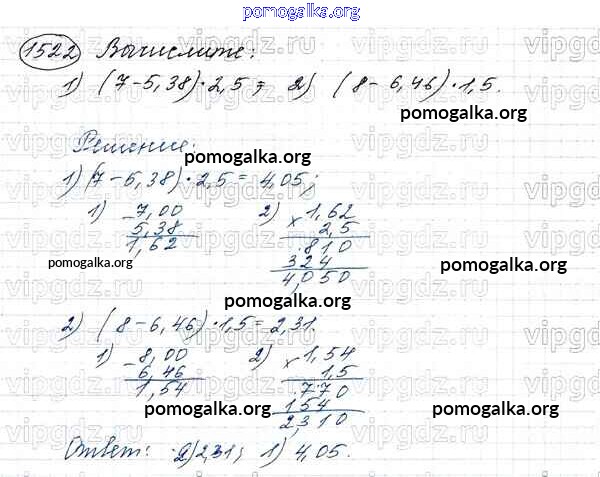 pomogalka.org
1522 Вычислите:
1) (7-5,38)·2,5; 2) (8-6,46)·1,5.
pomogalka.org
Решение:
pomogalka.org
1) (7-5,38)·2,5=4,05;
1) -7,00 2) ×1,62
5,38 2,5
1,62 810
324
4,050
pomogalka.org pomogalka.org
pomogalka.org
2) (8-6,46)·1,5=2,31.
1) -8,00 2) ×1,54
6,46 1,5
1,54 770
154
2,310
pomogalka.org pomogalka.org
Ответ: 2) 2,31; 1) 4,05.
vipgdz.ru